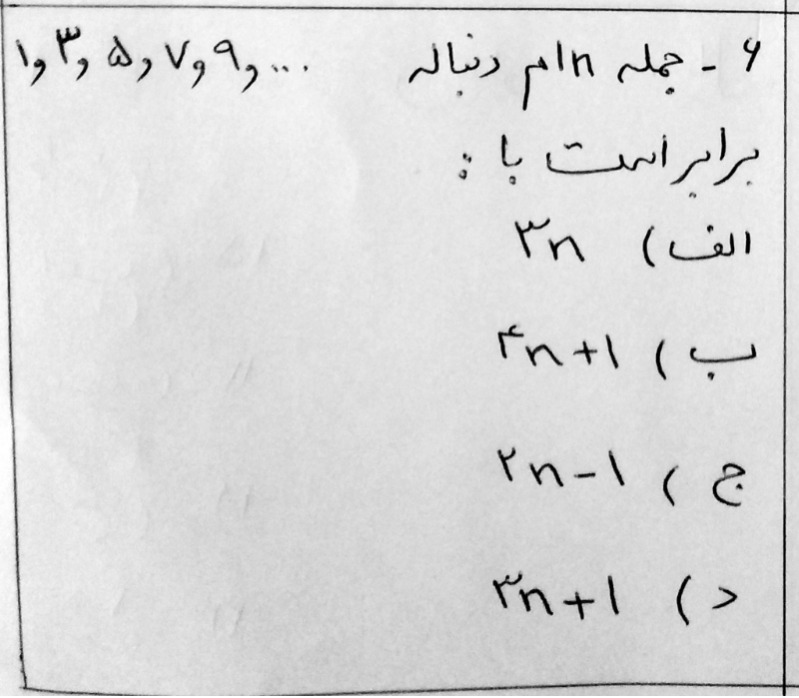 ۶ - جمله nام دنباله ۱ و ۳ و ۵ و ۷ و ۹ و ...
برابر است با :
الف) ۳n
ب) ۴n+۱
ج) ۲n-۱
د) ۳n+۱